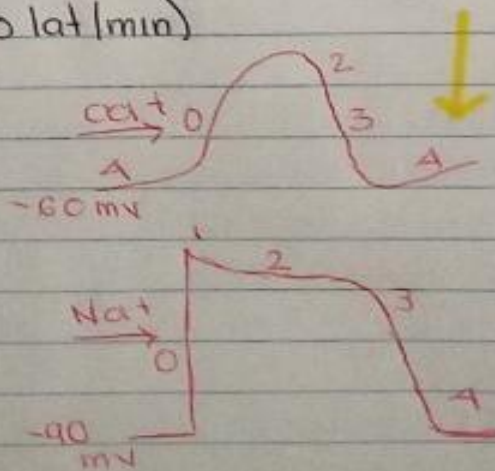 o lat/min)
2
Ca+ 0
3
4
4
-60 mv
1
2
Na+
3
0
4
-90
mv